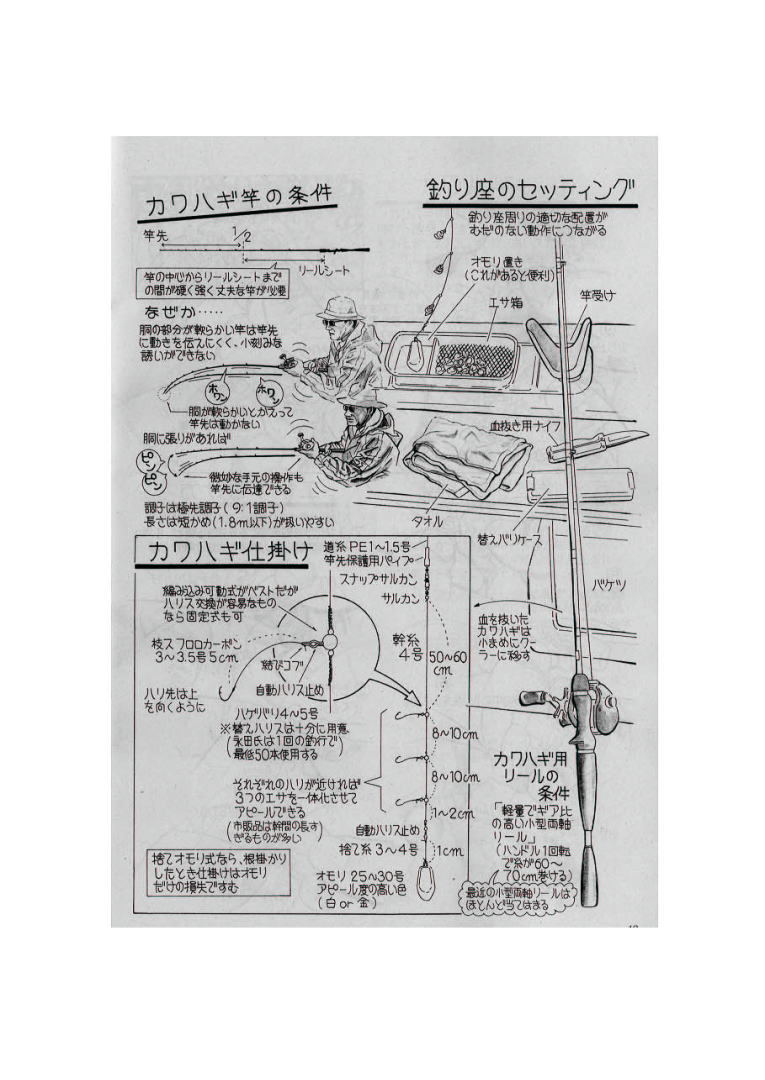 カワハギ竿の条件
竿先
1/2
リールシート
竿の中心からリールシートまで
の間が硬く強く丈夫な竿が必要
なぜか‥‥‥
胴の部分が軟らかい竿は竿先
に動きを伝えにくく、小刻みな
誘いができない
ホワン
ホワン
胴が軟らかいとかえって
竿先は動かない
胴に張りがあれば
ピン
ピン
微妙な手元の操作も
竿先に伝達できる
調子は極先調子(9:1調子)
長さは短かめ(1.8m以下)が扱いやすい
釣り座のセッティング
釣り座周りの適切な配置が
むだのない動作につながる
オモリ置き
(これがあると便利)
エサ箱
竿受け
血抜き用ナイフ
タオル
替えバリケース
バケツ
血を抜いた
カワハギは
小まめにクー
ラーに移す
カワハギ仕掛け
道糸PE1〜1.5号
竿先保護用パイプ
スナップサルカン
サルカン
編み込み可動式がベストだが
ハリス交換が容易なもの
なら固定式も可
枝スフロロカーボン
3〜3.5号5cm
結びコブ
自動ハリス止め
ハリ先は上
を向くように
幹糸
4号
50〜60
cm
ハゲバリ4〜5号
※替えハリスは十分に用意
(永田氏は1回の釣行で
最低50本使用する)
8〜10cm
8〜10cm
それぞれのハリが近ければ
3つのエサを一体化させて
アピールできる
(市販品は幹間の長す
ぎるものが多い)
1〜2cm
自動ハリス止め
捨て糸3〜4号
1cm
捨てオモリ式なら、根掛かり
したとき仕掛けはオモリ
だけの損失ですむ
オモリ25〜30号
アピール度の高い色
(白or金)
カワハギ用
リールの
条件
「軽量でギア比
の高い小型両軸
リール」
(ハンドル1回転
で糸が60〜
70cm巻ける)
最近の小型両軸リールは
ほとんど当てはまる